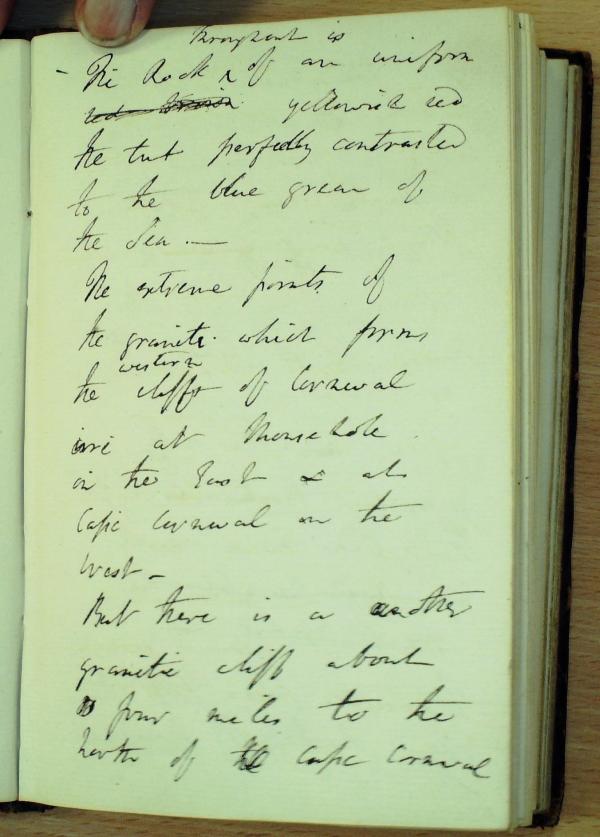 throughout is
- The Rock ^ of an uniform
red brown yellowish red
the tint perfectly contrasted
to the blue green of
the Sea. —
The extreme points of
the granite. which forms
western
the cliffs of Cornwal
are at Mousehole
in the East & at
Cape Cornwal on the
West -
But there is a another
granitic cliff about
four miles to the
North of the Cape Cornwal